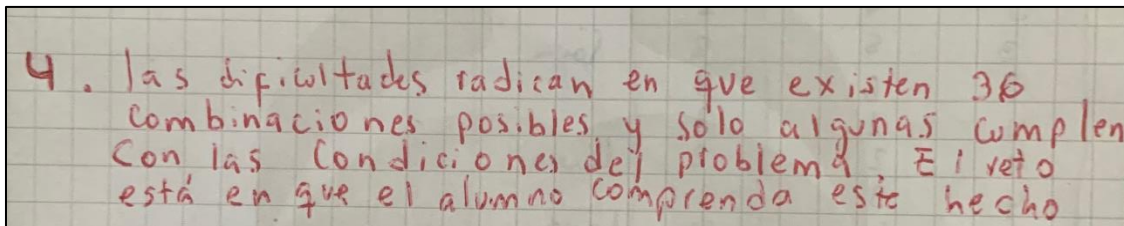 4. las dificultades radican en que existen 36
combinaciones posibles y solo algunas cumplen
con las condiciones del problema. El reto
está en que el alumno comprenda este hecho